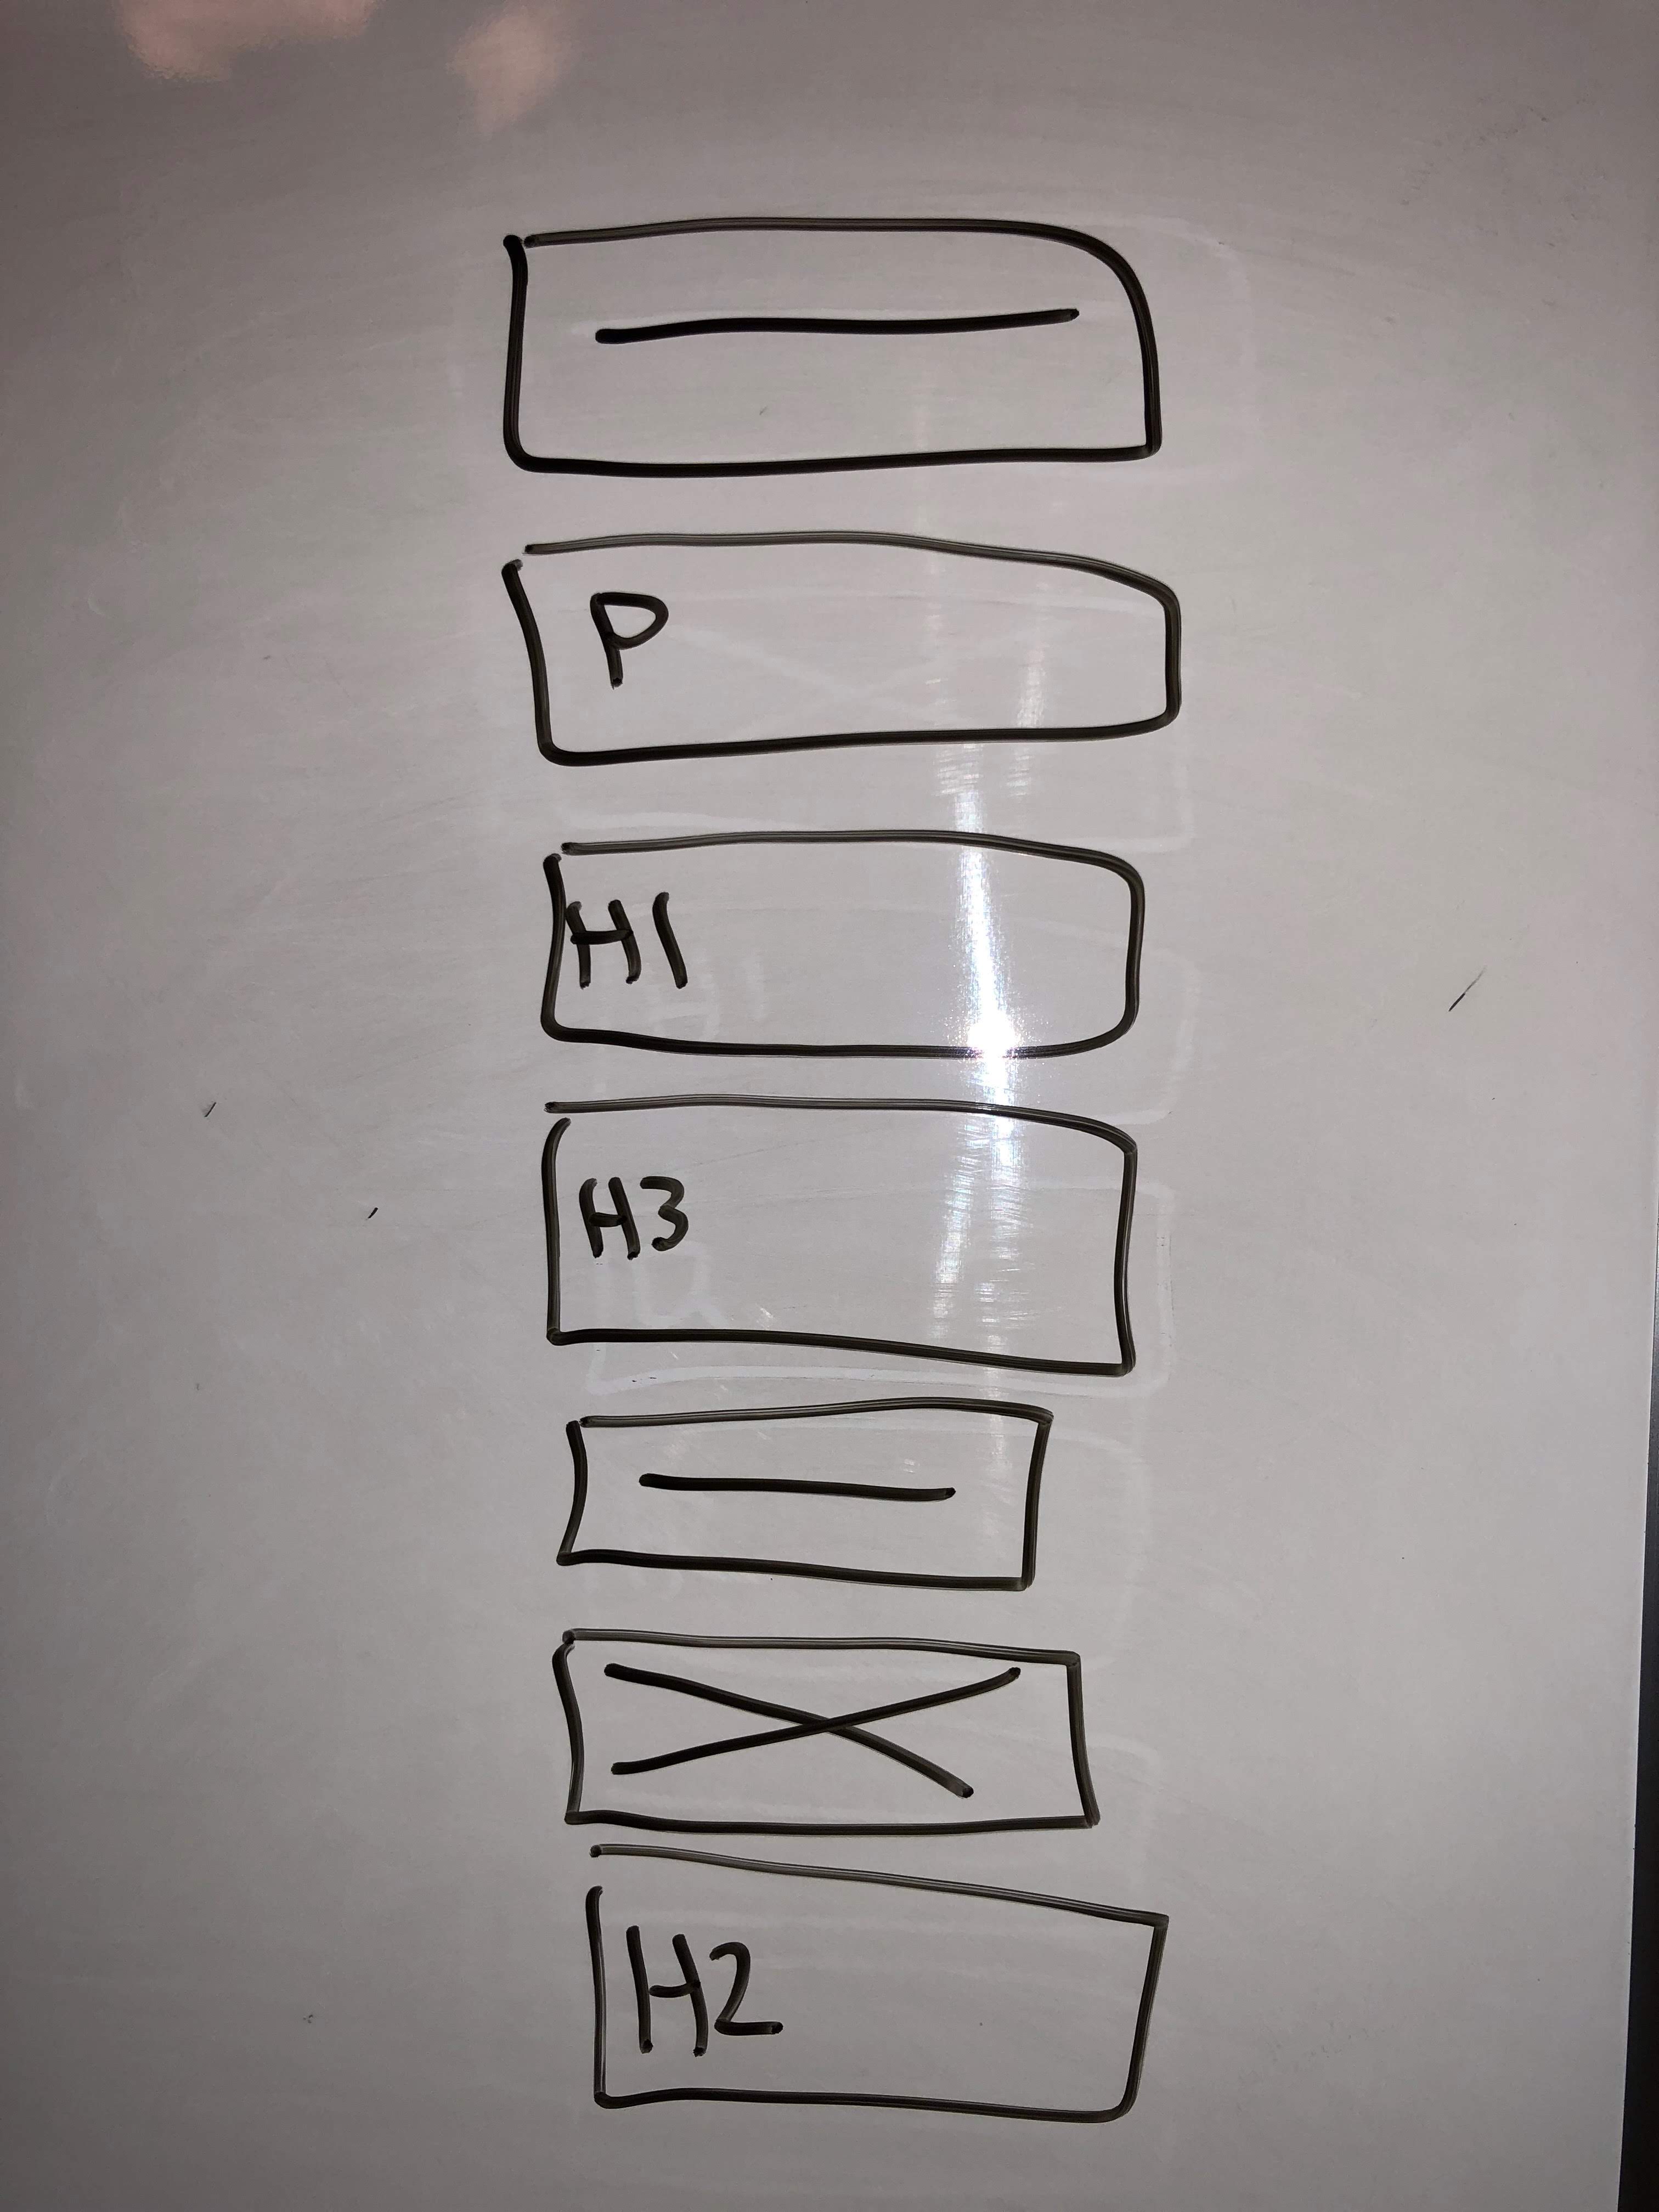 P
H1
H3
H2